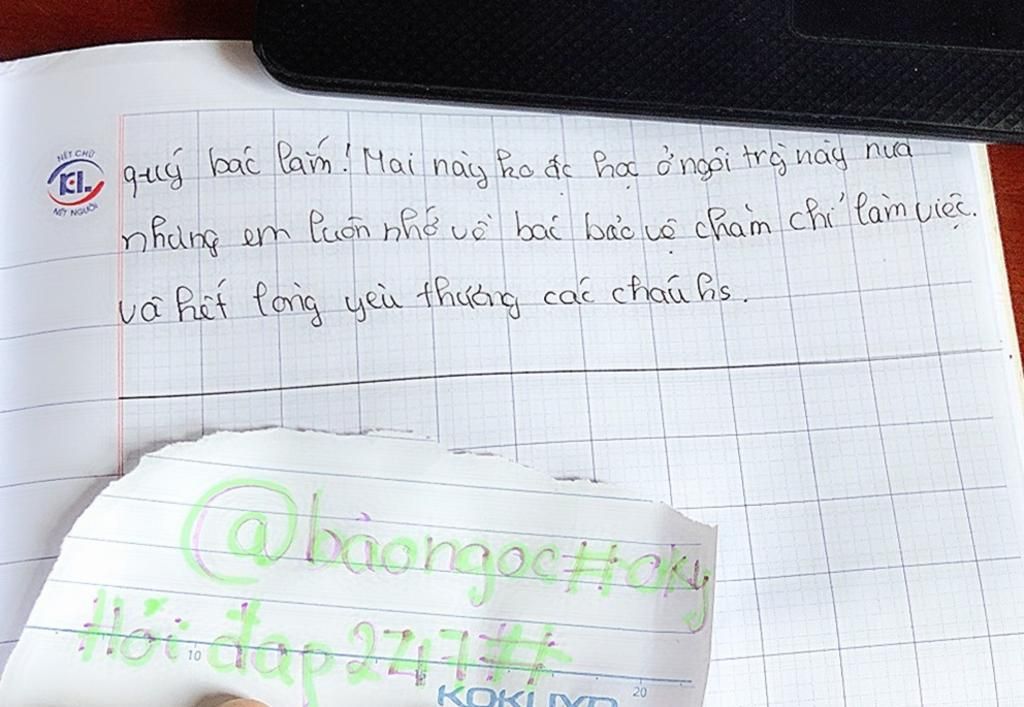 NÉT CHỮ
KL
NẾT NGƯỜI
quý bác lắm! Mai này ko đc học ở ngôi trg này nữa
nhưng em luôn nhớ về bác bảo vệ chăm chỉ làm việc.
và hết lòng yêu thương các cháu hs.
@bảongoc#oky
Hỏi đap247#
10
20
KOKUYO